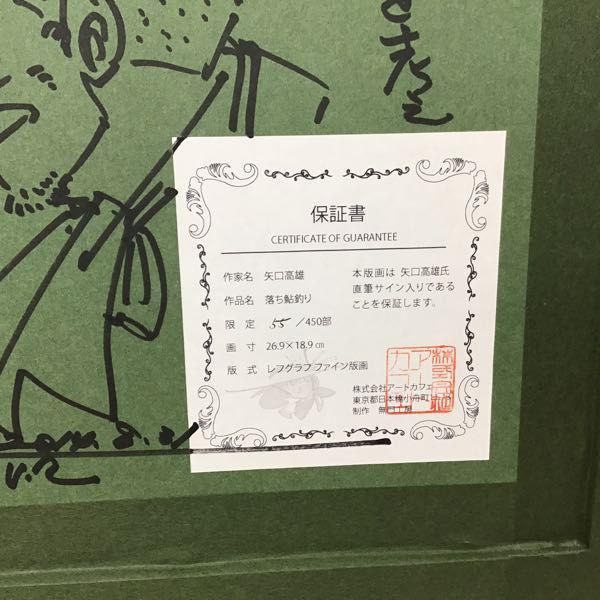 保証書
CERTIFICATE OF GUARANTEE
作家名 矢口高雄
作品名 落ち鮎釣り
限定 55/450部
画寸 26.9×18.9㎝
版式 レフグラフ ファイン版画
本版画は 矢口高雄氏
直筆サイン入りである
ことを保証します。
株式会社アートカフェ
東京都日本橋小舟町
制作